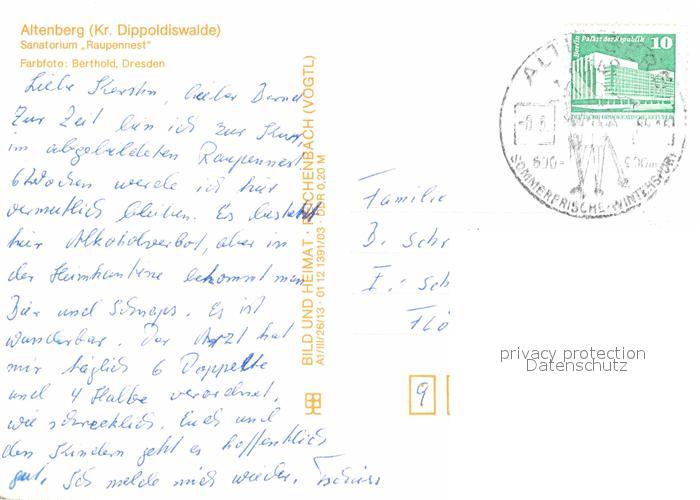 Altenberg (Kr. Dippoldiswalde)
Sanatorium „Raupennest"
Farbfoto: Berthold, Dresden
Liebe Kerstin, lieber Bernd
Zur Zeit bin ich zur Kur,
im abgebildeten Raupennest
6 Wochen werde ich hier
vermutlich bleiben. Es besteht
hier Alkoholverbot, aber in
der Heimkantine bekommt man
Bier und Schnaps. Es ist
wunderbar. Der Arzt hat
mir täglich 6 Doppelte
und 4 Halbe verordnet,
wie schrecklich. Euch und
den Kindern geht es hoffentlich
gut. Ich melde mich wieder. Tschüss
BILD UND HEIMAT REICHENBACH (VOGTL)
A1/III/26/13 · 01 12 1391/03 DDR 0,20 M
Berlin Palast der Republik 10
SOMMERFRISCHE · WINTERSPORT
Familie
B. Schr
I. Sch
9
privacy protection
Datenschutz